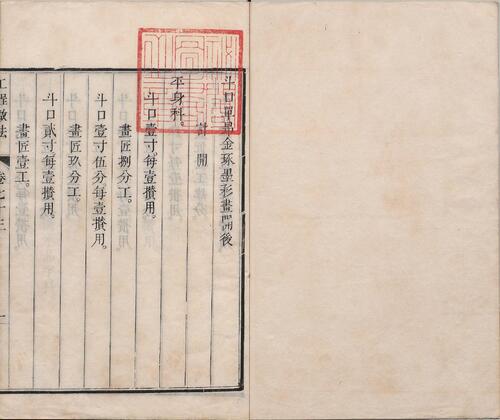 斗口單昻金琢墨彩畫開後
計開
平身科。
斗口壹寸。每壹攢用。
畫匠捌分工。
斗口壹寸伍分每壹攢用。
畫匠玖分工。
斗口貳寸。每壹攢用。
畫匠壹工。
工程做法 卷七十三 一